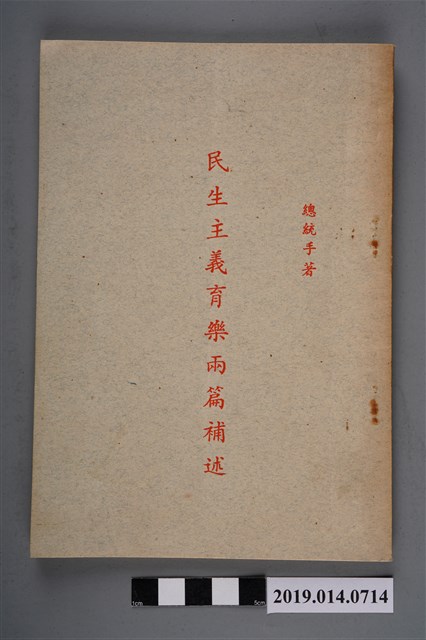 總統手著
民生主義育樂兩篇補述
1cm
5cm
2019.014.0714